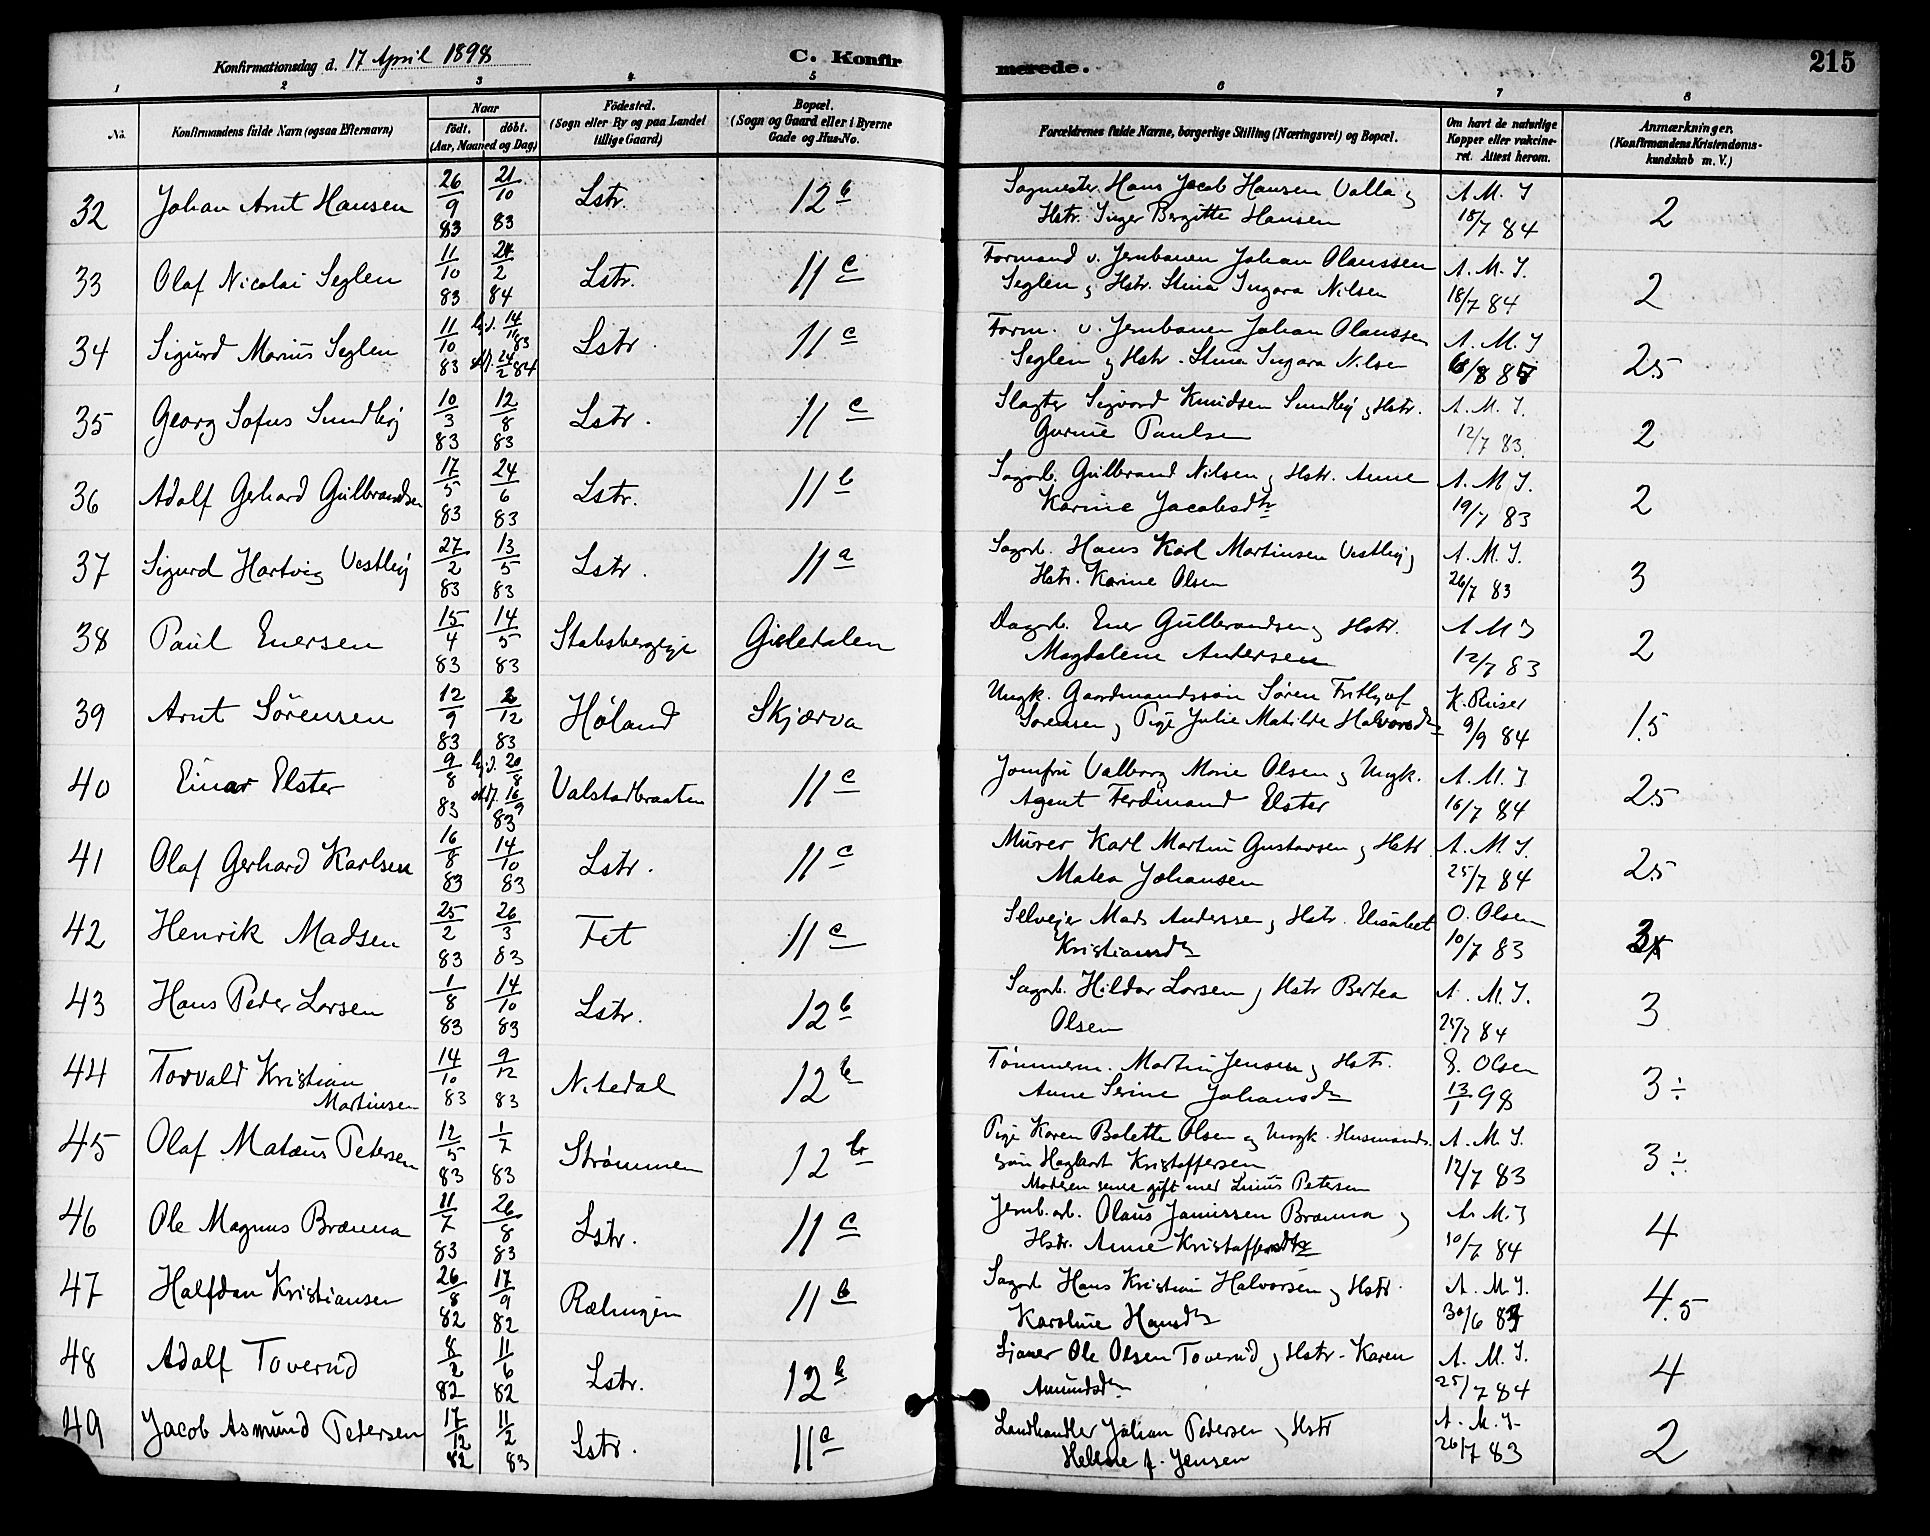 Konfirmationsdag d. 17 April 1898
C. Konfirmerede.
215
1 2 3 4 5 6 7 8
No.
Konfirmandens fulde Navn (ogsaa Efternavn)
Naar
født. døbt.
(Aar, Maaned og Dag)
Fødested.
(Sogn eller By og paa Landet
tillige Gaard)
Bopæl.
(Sogn og Gaard eller i Byerne
Gade og Hus-No.
Forældrenes fulde Navne, borgerlige Stilling (Næringsvei) og Bopæl.
Om havt de naturlige
Kopper eller vakcine-
ret. Attest herom.
Anmærkninger.
(Konfirmandens Kristendoms-
kundskab m. V.)
32 Johan Arnt Hansen 26/9 83 21/10 83 Lstr. 12 b Sagmester Hans Jacob Hansen Valla og
Hstr. Inger Bergitte Hansen A. M. J 18/7 84 2
33 Olaf Nicolai Seglen 11/10 83 24/2 84 Lstr. 11 c Formand v. Jernbanen Johan Olaussen
Seglen og Hstr. Stina Ingara Nilsen A. M. J. 18/7 84 2
34 Sigurd Marius Seglen 11/10 83 hjd. 14/11 83 stdf. 24/2 84 Lstr. 11 c Form. v. Jernbanen Johan Olaussen
Seglen og Hstr. Stina Ingara Nilsen A. M. J 2.5
35 Georg Sofus Sundby 10/3 83 12/8 83 Lstr. 11 c Slagter Sigvard Knudsen Sundby og Hstr.
Gurine Paulsen A. M. J. 12/7 83. 2
36 Adolf Gerhard Gulbrandsen 17/5 83 24/6 83 Lstr. 11 b Sagarb. Gulbrand Nilsen og Hstr. Anne
Karine Jacobsdtr A. M J. 19/7 83 2
37 Sigurd Hartvig Vestby 27/2 83 13/5 83 Lstr. 11 a Sagarb. Hans Karl Martinsen Vestby og
Hstr. Karine Olsen A. M. J. 26/7 83 3
38 Paul Enersen 15/4 83 14/5 83 Gjeledalen Dagarb. Ener Gulbrandsen og Hstr.
Magdalene Andersen A M J 12/7 83 2
39 Arnt Sørensen 12/9 83 2/12 83 Høland Skjærva Ungk. Gaardmandssøn Søren Frithjof
Sørensen og Pige Julie Matilde Halvorsdtr K. Riiser 9/9 84 1.5
40 Einar Elster 9/8 83 hjd. 20/8 stdf. 16/9 83 Valstadbraaten 11 c Jomfru Valborg Marie Olsen og Ungk.
Agent Ferdinand Elster A. M. J 16/7 84 2.5
41 Olaf Gerhard Karlsen 16/8 83 14/10 83 Lstr. 11 c Murer Karl Martin Gustavsen og Hstr.
Matea Johansen A. M. J. 25/7 84 2.5
42 Henrik Madsen 25/2 83 26/3 83 Fet 11 c Selveier Mads Anderssen og Hstr. Elisabet
Kristiansdtr O. Olsen 10/7 83 3
43 Hans Peder Larsen 1/8 83 14/10 83 Lstr. 12 b Sagarb. Hildar Larsen og Hstr Bertea
Olsen A. M. J. 25/7 84 3
44 Torvald Kristian
Martinsen 14/10 83 9/12 83 Nitedal 12 b Tømmerm. Martin Jensen og Hstr.
Anne Serine Johansdtr Olsen 13/1 98 3 ÷
45 Olaf Matæus Petersen 12/5 83 1/7 83 Strømmen 12 b Pige Karen Bolette Olsen og Ungk. Husmands-
søn Hagbart Kristoffersen
Moderen senere gift med Linus Petersen A. M. J. 12/7 83 3 ÷
46 Ole Magnus Brænna 11/7 83 26/8 83 Lstr. 11 c Jernb. arb. Olaus Janissen Brænna og
Hstr. Anne Kristoffersdtr A. M. J 10/7 84 4
47 Halfdan Kristiansen 26/8 82 17/9 82 Rælingen 11 b Sagarb Hans Kristian Halvorsen og Hstr.
Karoline Hansdtr A. M J. 30/6 83 4.5
48 Adolf Toverud 8/2 82 11/6 82 Lstr. 12 b Sjauer Ole Olsen Toverud og Hstr. Karen
Amundsdtr A. M. J. 25/7 84 4
49 Jacob Asmund Pedersen 17/12 82 11/2 83 Lstr. 11 a Landhandler Johan Pedersen og Hstr
Helene f. Jensen A. M. J. 26/7 83 2